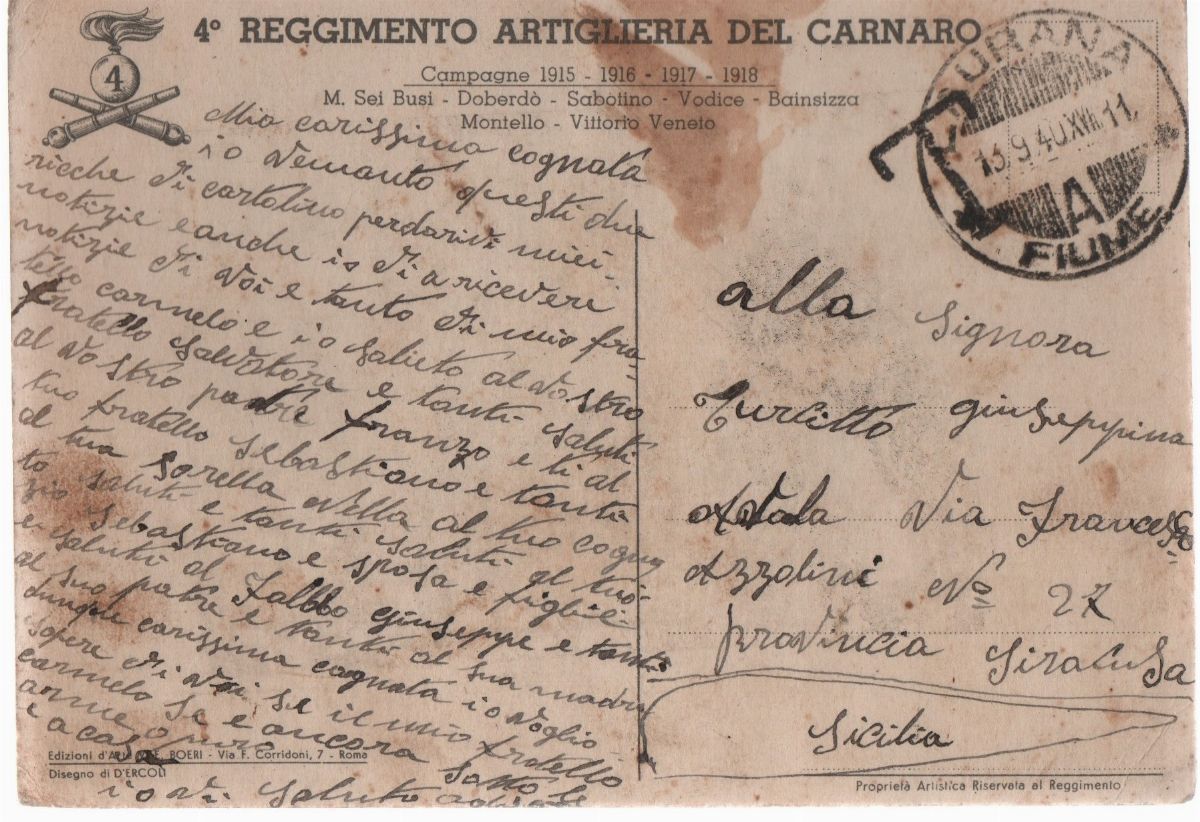 4° REGGIMENTO ARTIGLIERIA DEL CARNARO
Campagne 1915 - 1916 - 1917 - 1918
M. Sei Busi - Doberdò - Sabotino - Vodice - Bainsizza
Montello - Vittorio Veneto
4
LAURANA
13.9.40.XVIII.11
A
FIUME
Mia carissima cognata
io vemanto questi due
ricche di cartolino perdarivi miei
notizie e anche io di a riceveri
notizie di voi e tanto di mio fra-
tello carmelo e io saluto al vostro
fratello salvatore e tanti saluti
al vostro padre franzo e ti al
tuo fratello sebastiano e tanti
a tua sorella nella al tuo cogna
to saluti e tanti saluti al tuoi
zio sebastiano e sposa e figli e-
e saluti al Falbbo giuseppe e tanti
al suo patre e tanti al sua madre
dunque carissima cognata io voglio
sapere di voi se il mio fratello
carmelo se e ancora sotto le
arme o
e a casa
io vi saluto
alla signora
Turcitto giuseppina
Avala Via Francesco
Azzolini No 27
provincia siracusa
Sicilia
Edizioni d'Arte E. BOERI - Via F. Corridoni, 7 - Roma
Disegno di D'ERCOLI
Proprietà Artistica Riservata al Reggimento